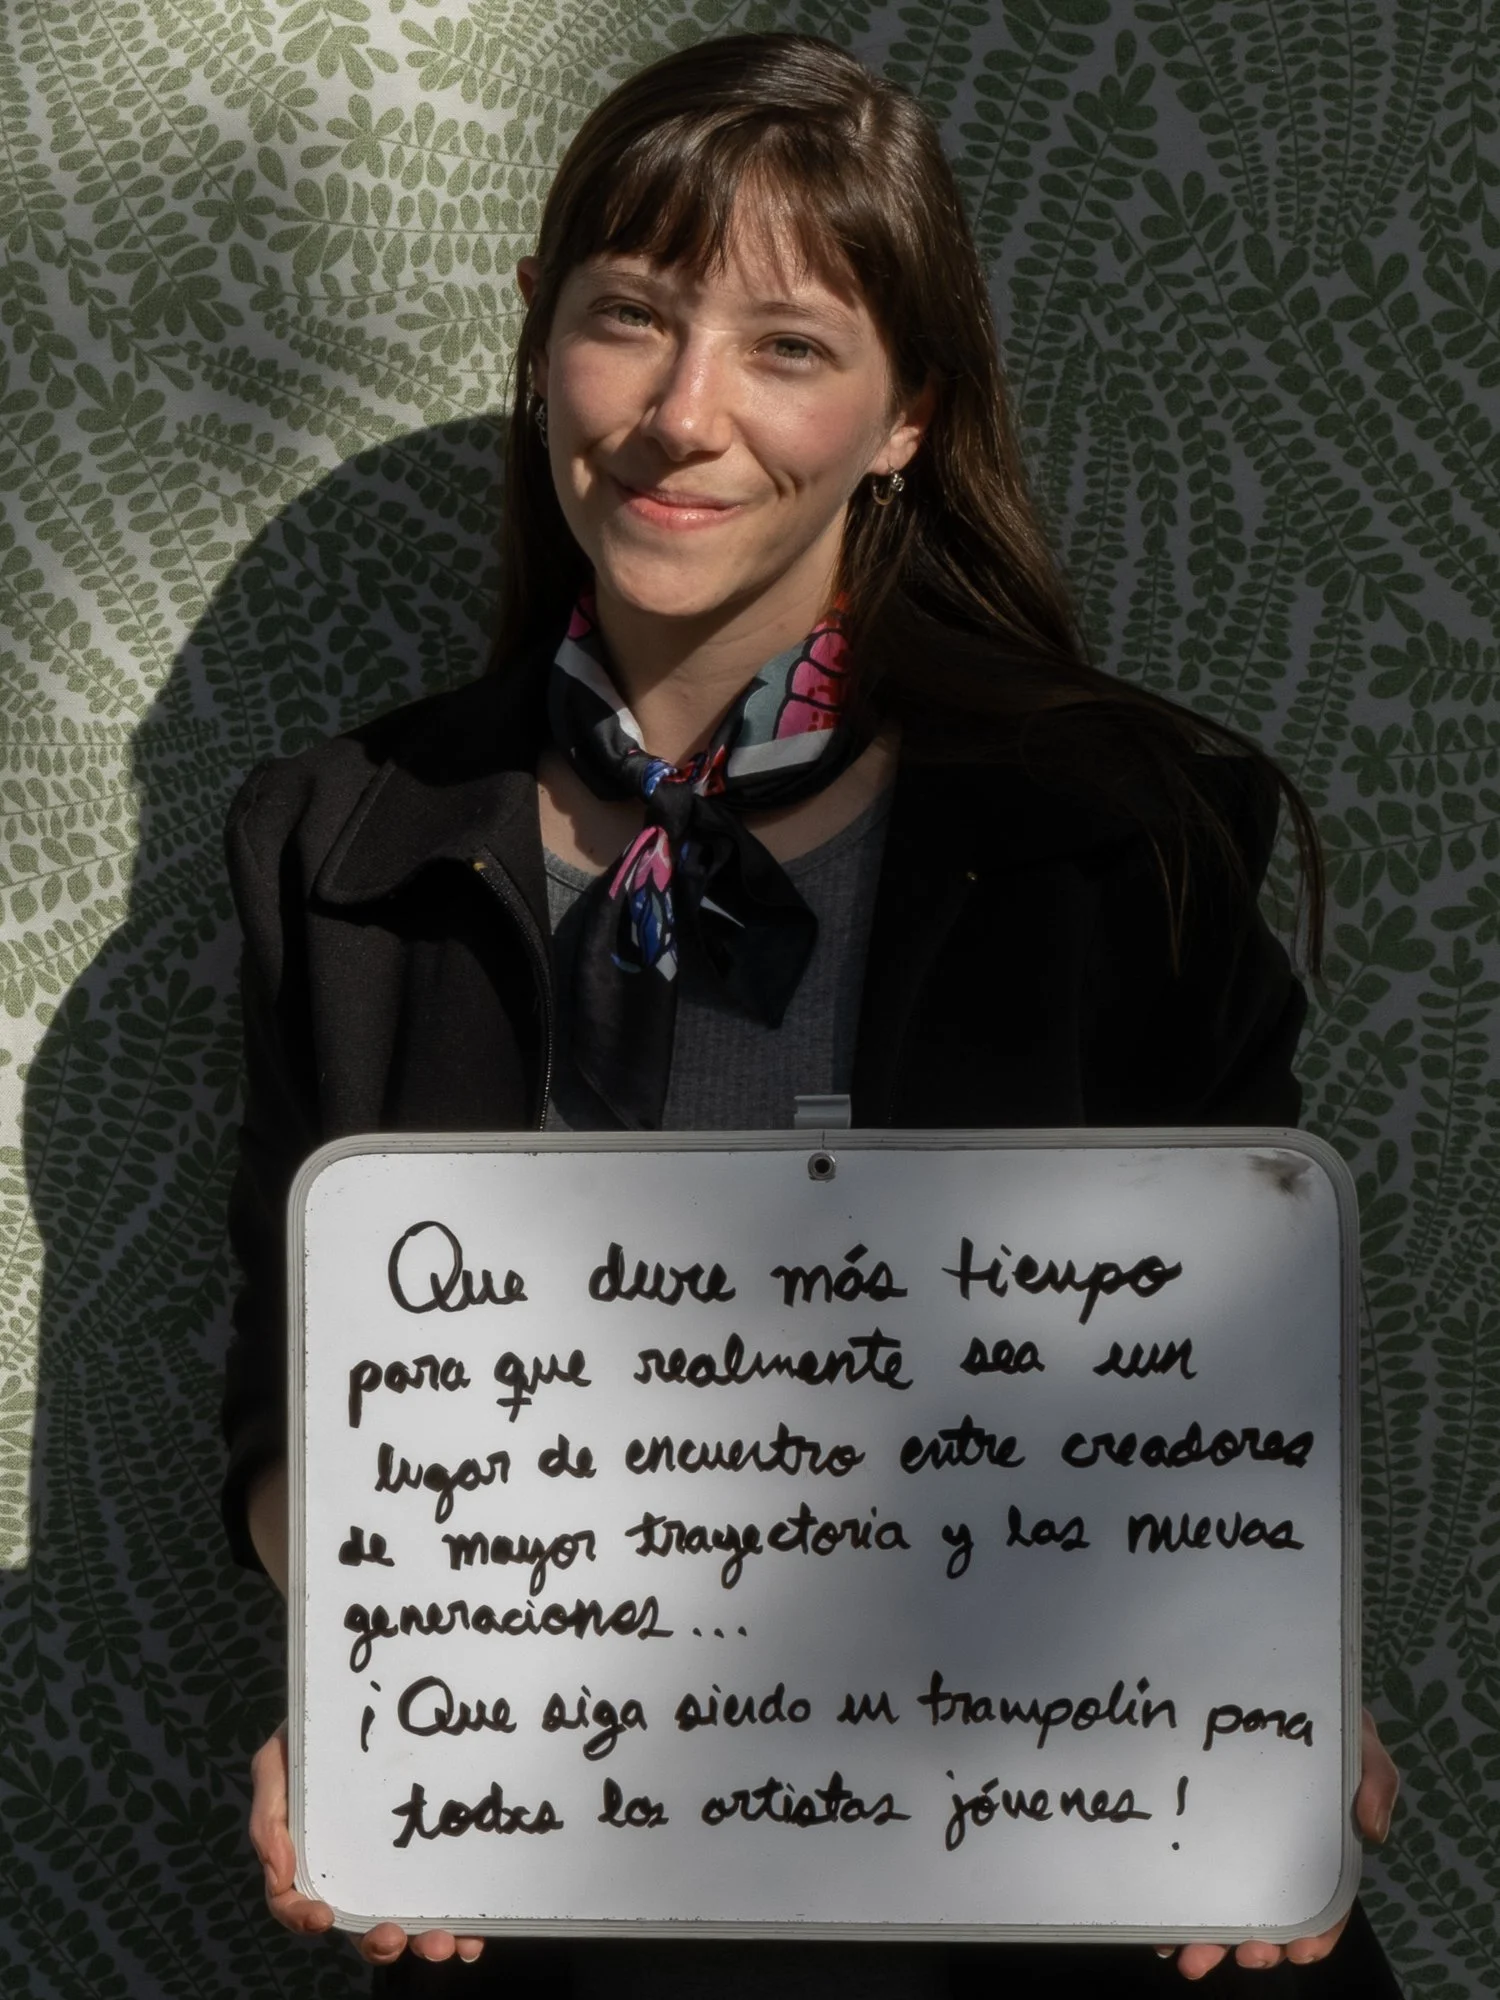 Que dure más tiempo
para que realmente sea un
lugar de encuentro entre creadores
de mayor trayectoria y las nuevas
generaciones...
¡Que siga siendo un trampolín para
todxs los artistas jóvenes!